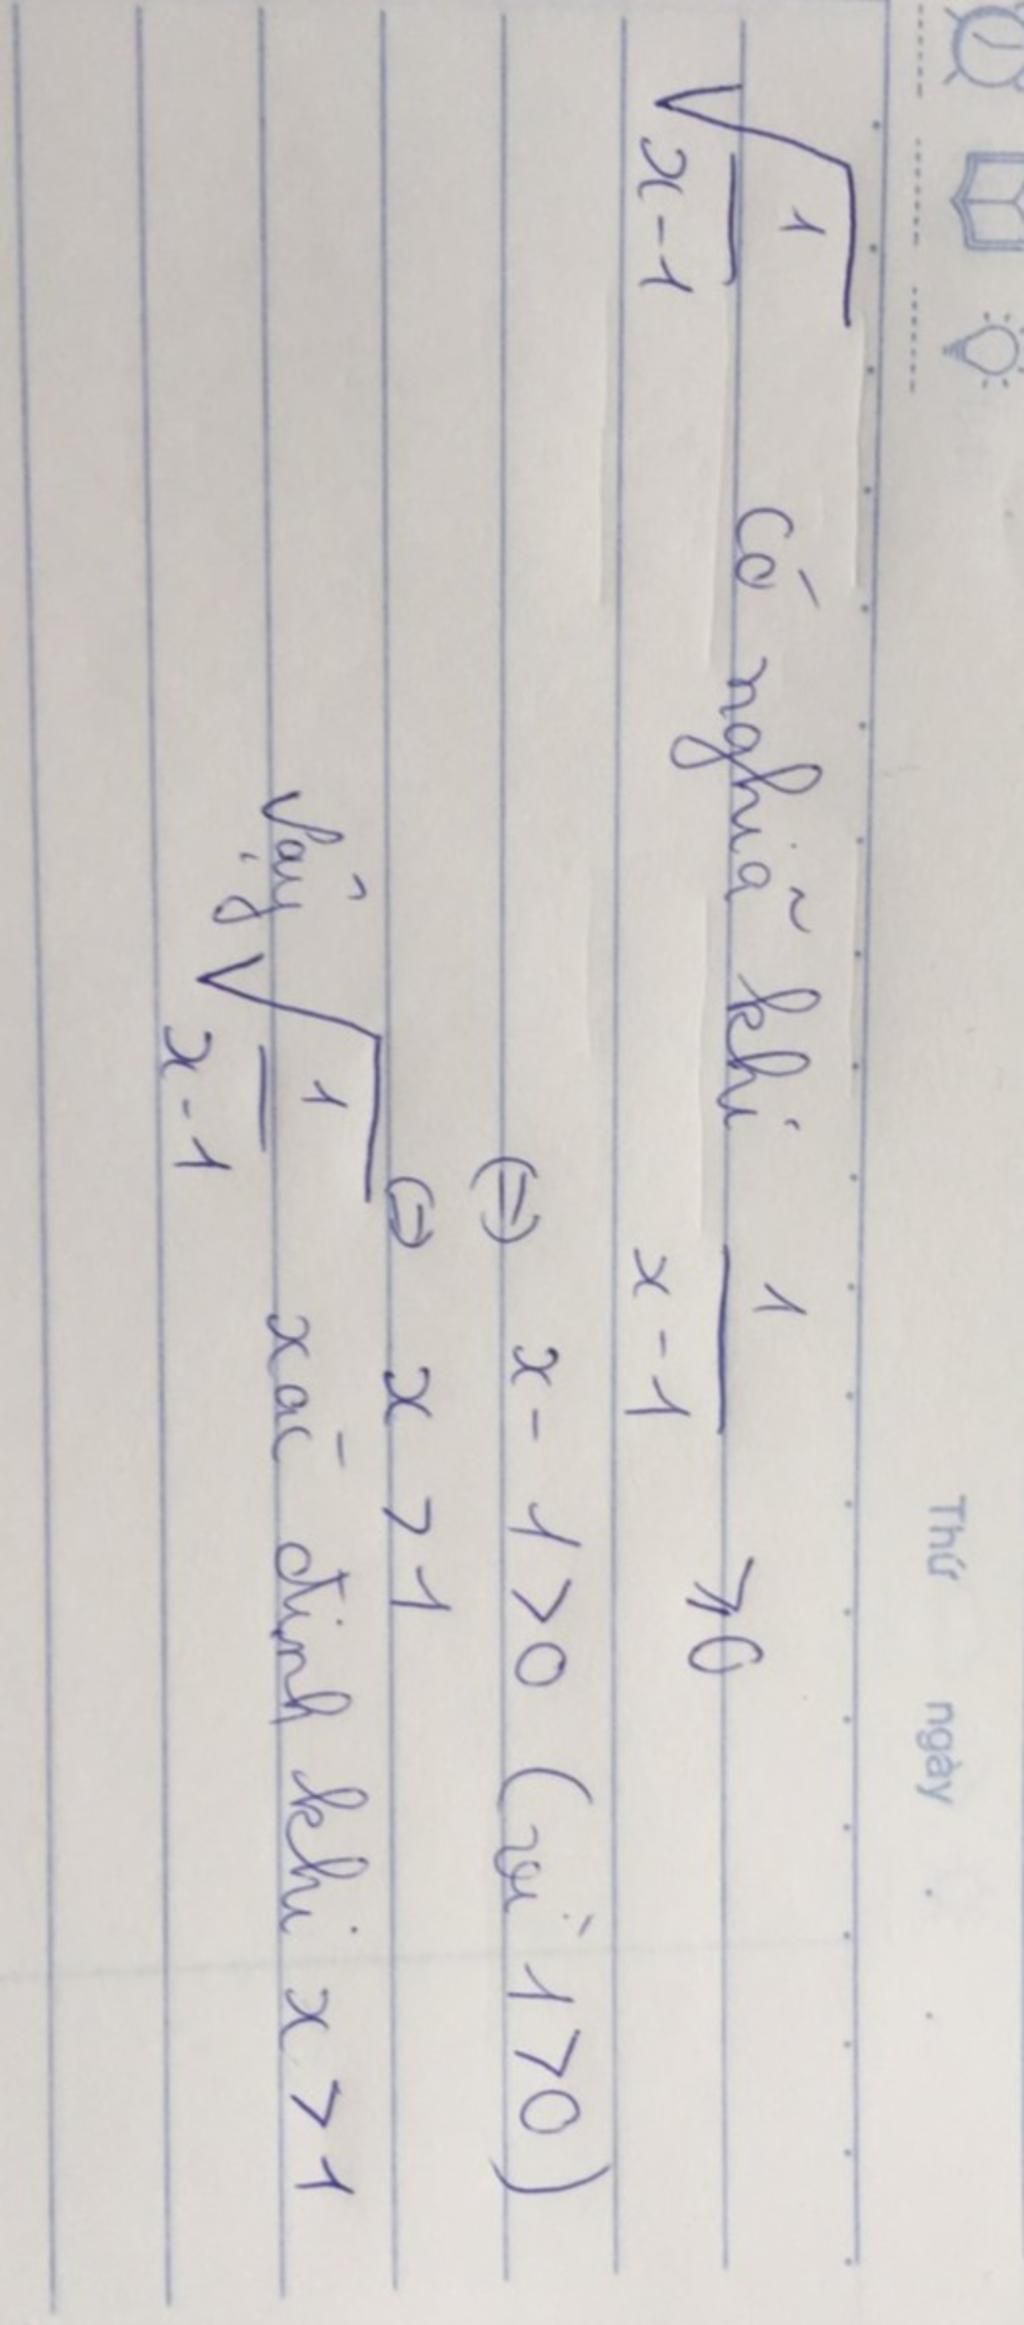 Thứ ngày . .
√(1/(x-1)) Có nghĩa khi 1/(x-1) ⩾0
(=) x - 1 > 0 (vì 1 > 0)
(=) x > 1
Vậy √(1/(x-1)) xác định khi x > 1